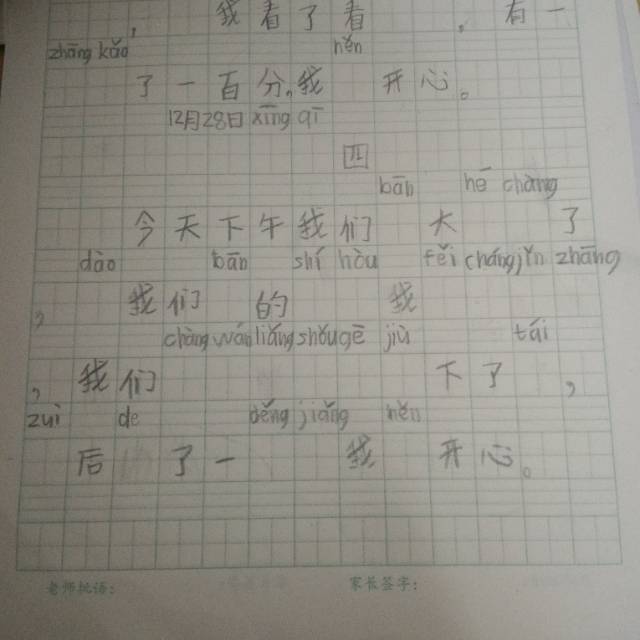 我看了看，有一
zhāng kǎo hěn
了一百分。我 开心。
12月28日 xīng qī
四
bān hē chàng
今天下午我们 大 了
dào bān shí hòu fēi cháng jǐn zhāng
，我们 的 我
chàng wán liǎng shǒu gē jiù tái
，我们 下了，
zuì de děng jiǎng hěn
后 了一 我 开心。
老师批语： 家长签字：